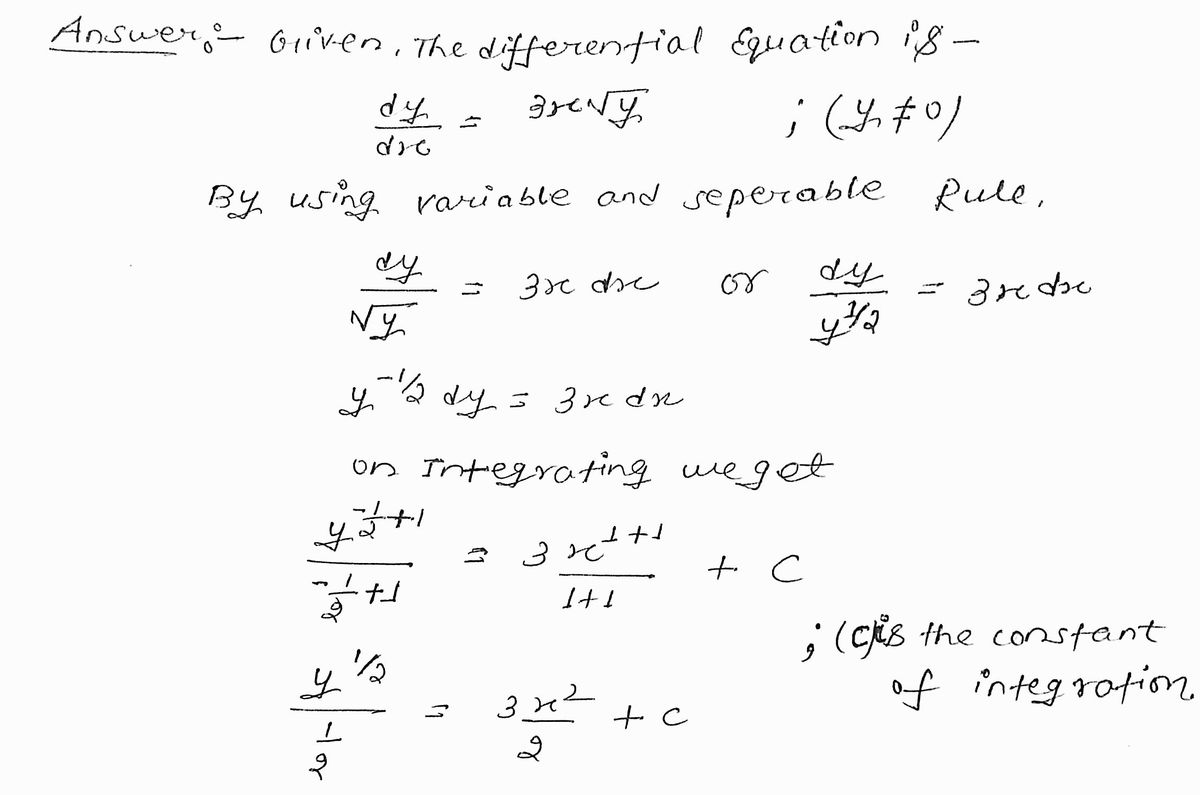 Answer:- Given, The differential Equation is -
dy/dx = 3x√y ; (y ≠ 0)
By using variable and seperable Rule,
dy/√y = 3x dx or dy/y^1/2 = 3x dx
y^-1/2 dy = 3x dx
on Integrating we get
y^(-1/2+1)/(-1/2+1) = 3 x^(1+1)/(1+1) + C
; (C) is the constant
of integration.
y^1/2/(1/2) = 3x^2/2 + c